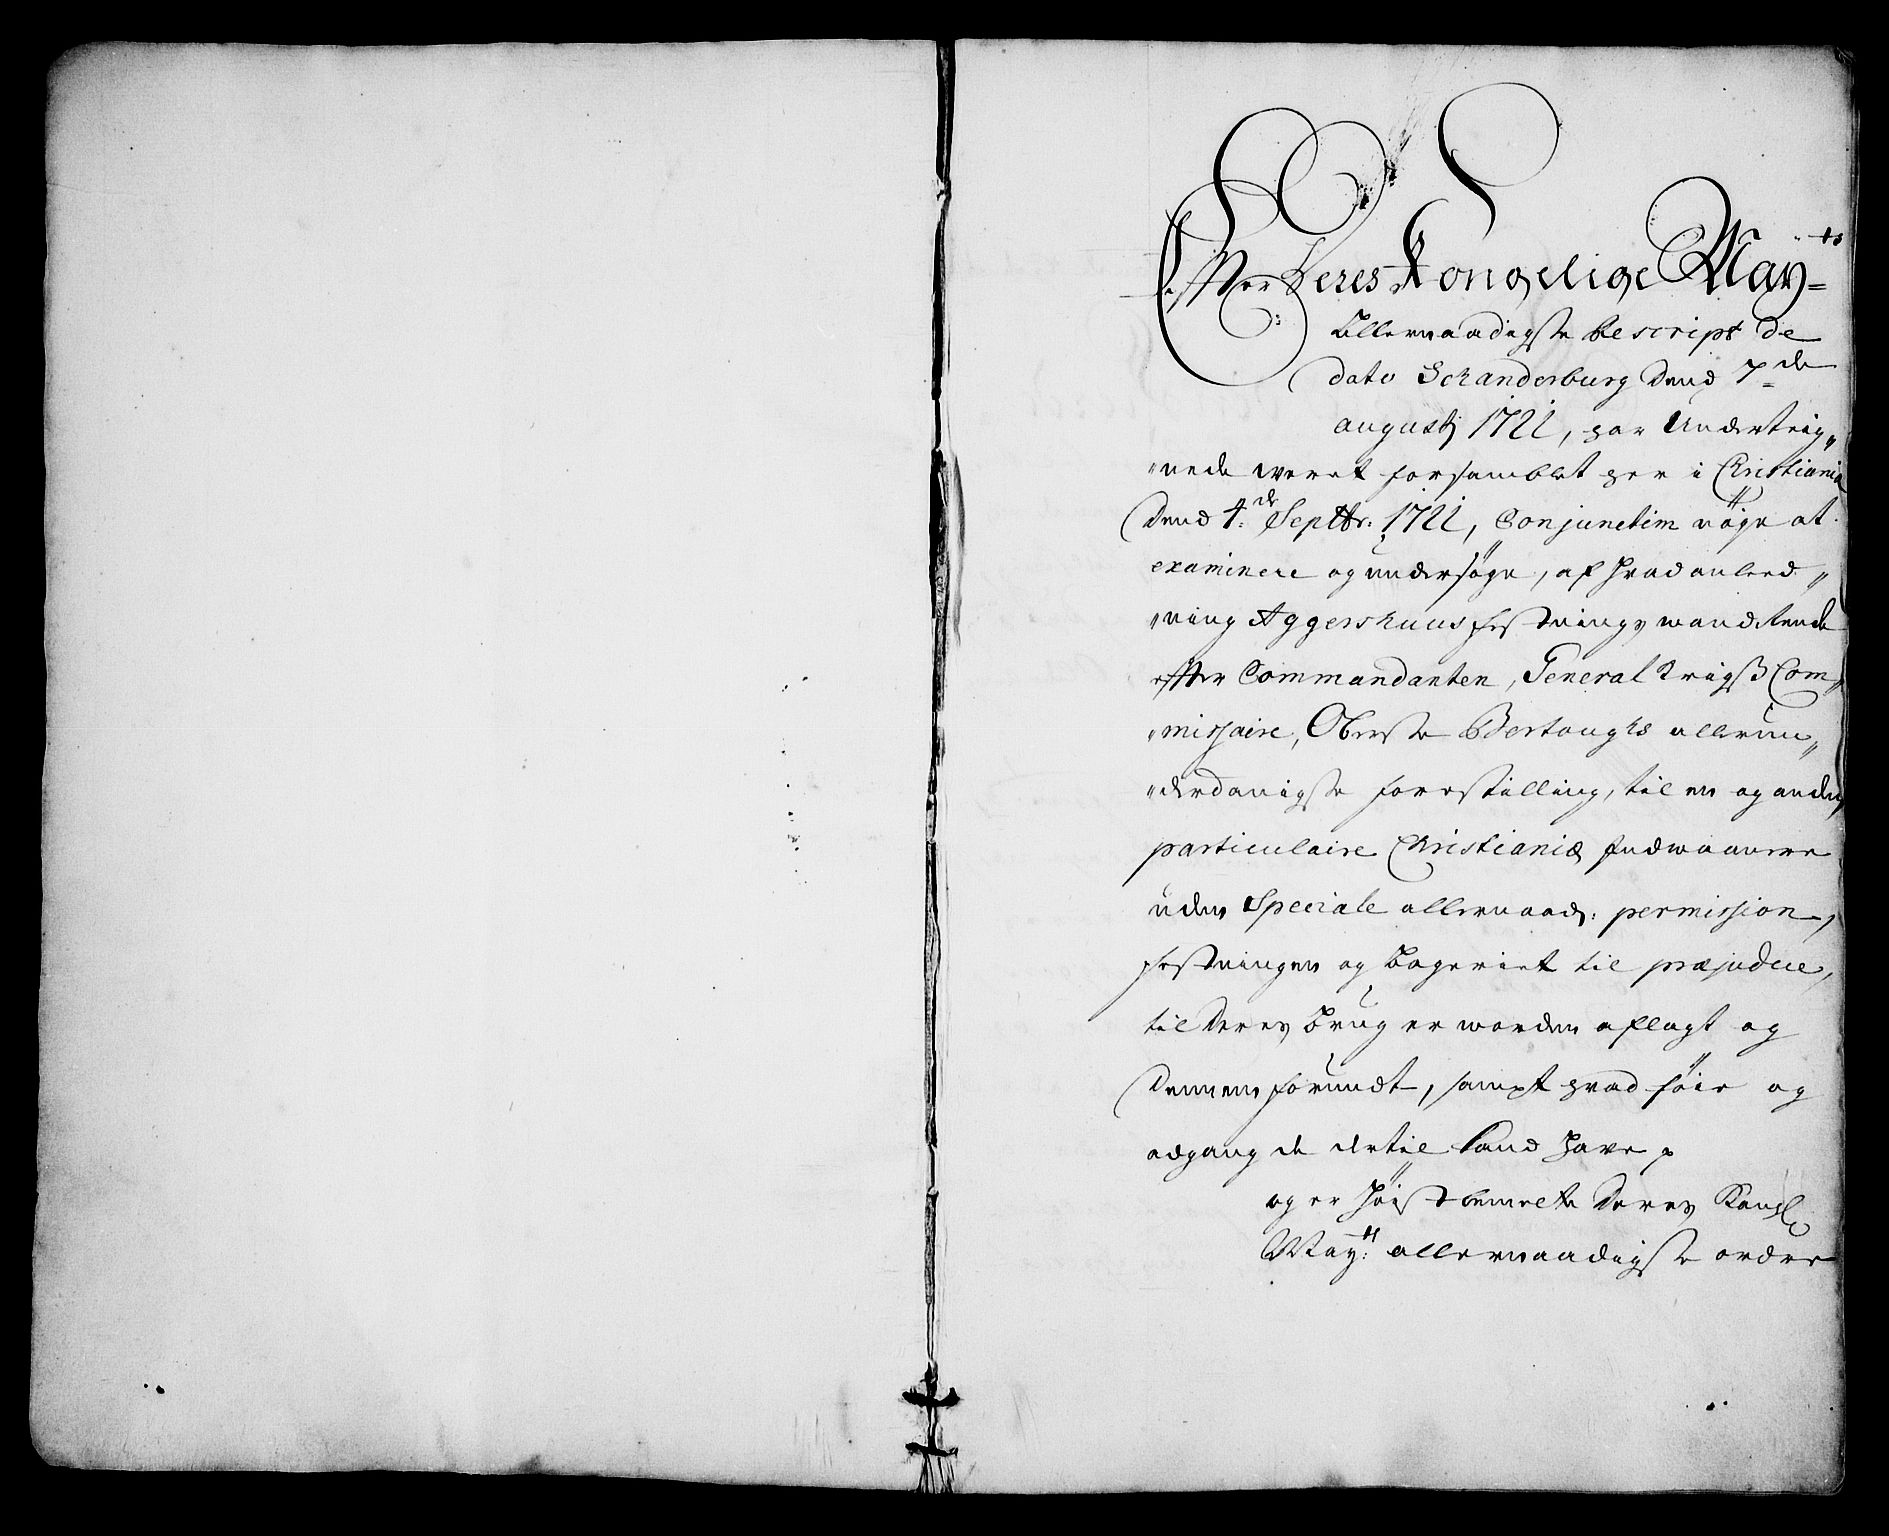 Efter Deres Kongelige May=ts
Allernaadigste Rescript de
dato Schanderburg dend 7=de
augustj 1722, har Underteig„
„nede weret forsamblet her i Christiania
dend 4:de Septbr: 1722, Conjunctim nöye at
examinere og undersöge, af hvad anleed„
„ning Aggershuus festnings wandtende
efter Commandanten, General Krigß Com„
„missaire, Oberste Bertouchs allerun„
„derdanigste forestilling, til en og anden
particulaire Christianiæ Indwaanere
uden Speciale allernaad: permission,
festningen og Bageriet til præjudice,
til deres brug er worden aflagt og
dennem forundt, sampt hvad föie og
adgang de dertil kand have p
og er höist bemelte Deres Kongl:
May:tt allernaadigste ordre